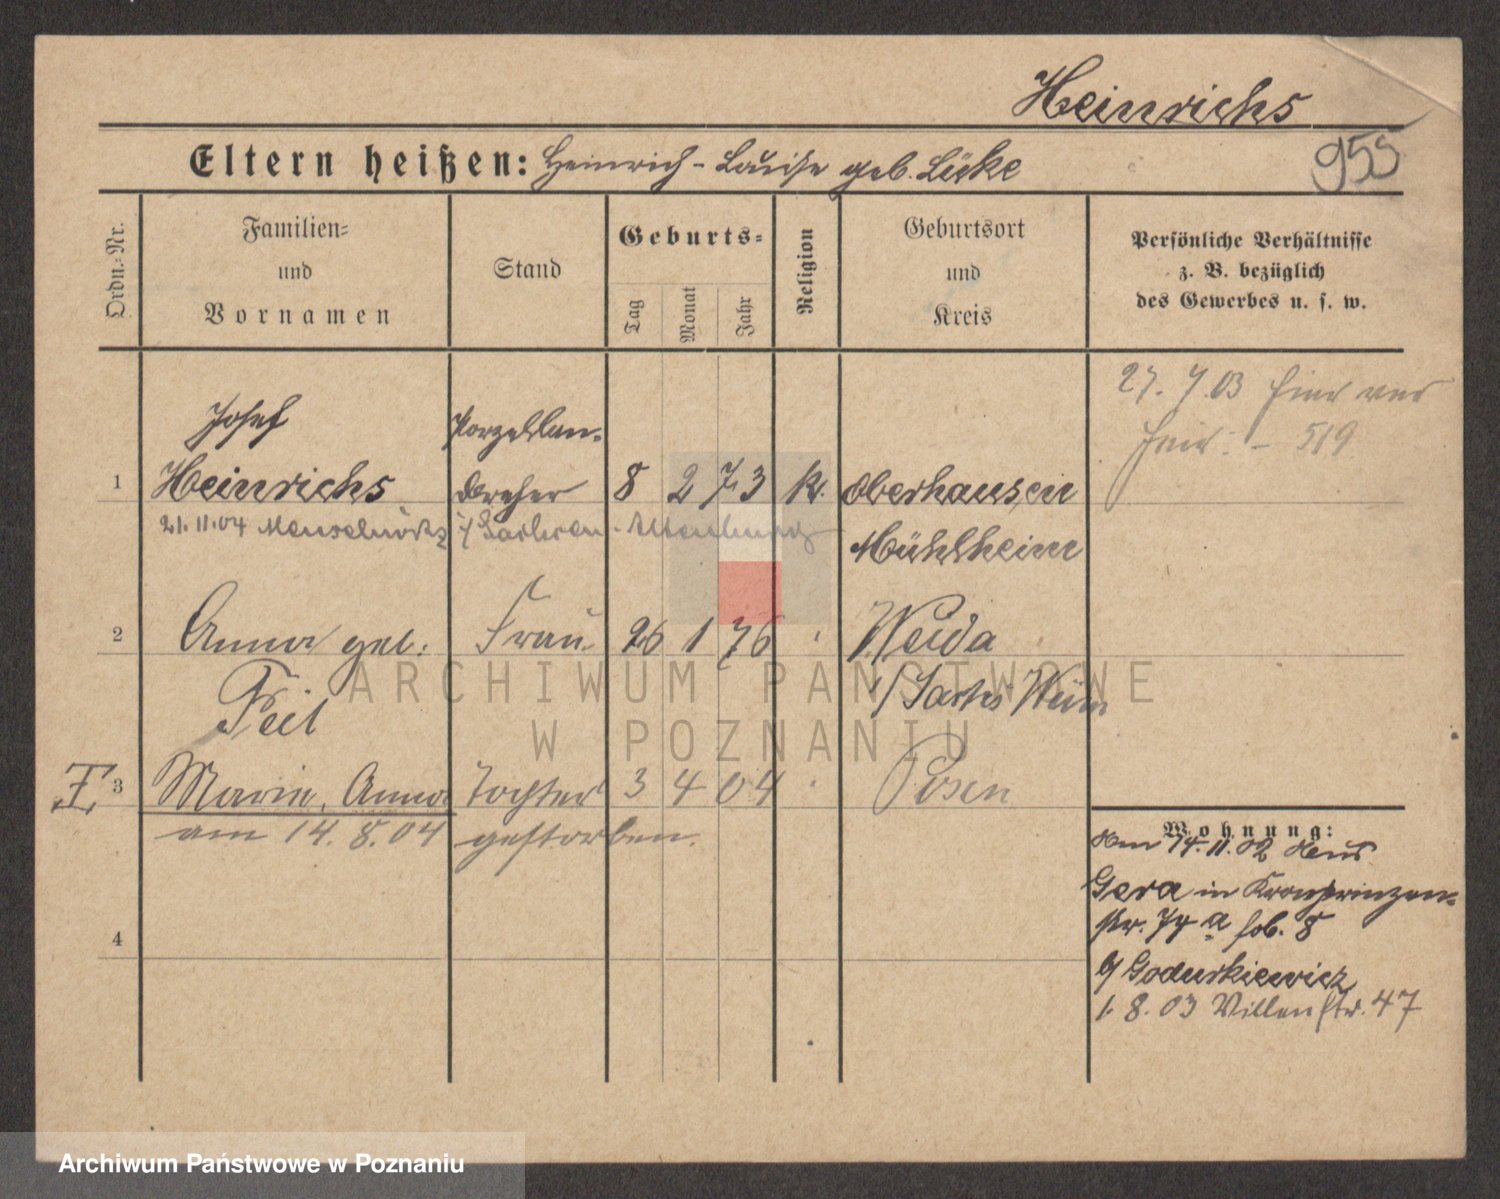 Heinrichs
955
Eltern heißen: Heinrich - Louise geb. Lücke
Ordn.-Nr.
Familien-
und
Vornamen
Stand
Geburts-
Tag
Monat
Jahr
Religion
Geburtsort
und
Kreis
Persönliche Verhältnisse
z. B. bezüglich
des Gewerbes u. s. w.
27. 7. 03
519
Josef Porzellan-
1 Heinrichs dreher 8 2 73 k. Oberhausen
21.11.04 Meuselwitz i/ Sachsen - Altenburg
Mühlheim
2 Anna geb: Frau 26 1 76 Weida
Feil
i/ Sachs Weim
3 Marie, Anna Tochter 3 4 04 Posen
am 14. 8. 04 gestorben.
4
Wohnung:
den 14. 11. 02 aus
Gera in Kronprinzen-
str. 74 a
b/ Godurkiewicz
1. 8. 03 Villen str. 47
ARCHIWUM PAŃSTWOWE
W POZNANIU
Archiwum Państwowe w Poznaniu